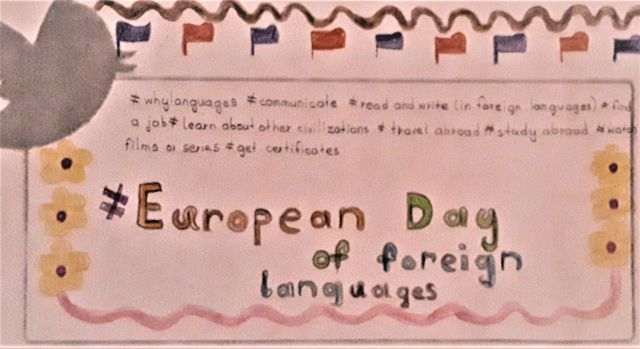 #whylanguages #communicate #read and write (in foreign languages) #find
a job #learn about other civilizations #travel abroad #study abroad #watch
films or series #get certificates
#European Day
of foreign
languages